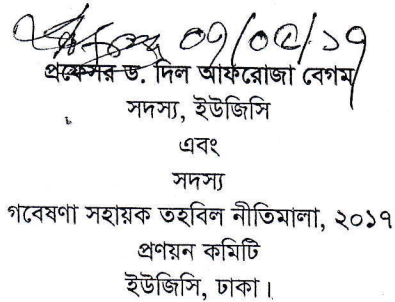 ০৭/০৫/১৭
প্রফেসর ড. দিল আফরোজা বেগম
সদস্য, ইউজিসি
এবং
সদস্য
গবেষণা সহায়ক তহবিল নীতিমালা, ২০১৭
প্রণয়ন কমিটি
ইউজিসি, ঢাকা।